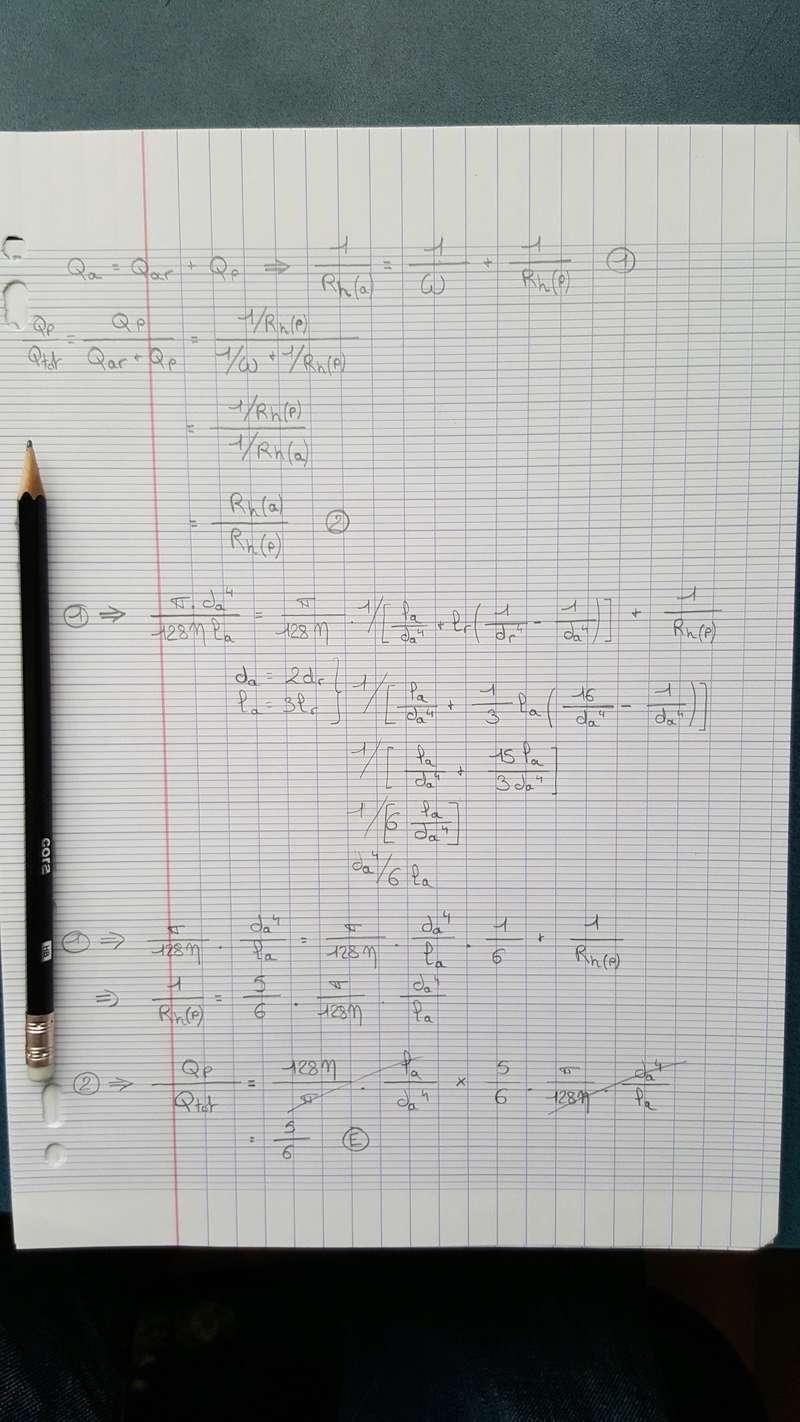 Qa = Qar + Qp ⇒ 1/Rh(a) = 1/ω + 1/Rh(p) ①
Qp/Qtot = Qp/(Qar + Qp) = (1/Rh(p))/(1/ω + 1/Rh(p))
= (1/Rh(p))/(1/Rh(a))
= Rh(a)/Rh(p) ②
① ⇒ π.da⁴/128η la = π/128η . 1/[la/da⁴ + lr(1/dr⁴ − 1/da⁴)] + 1/Rh(p)
da = 2dr
la = 3lr } 1/[la/da⁴ + 1/3 la(16/da⁴ − 1/da⁴)]
1/[la/da⁴ + 15 la/3da⁴]
1/[6 la/da⁴]
da⁴/6 la
① ⇒ π/128η . da⁴/la = π/128η . da⁴/la . 1/6 + 1/Rh(p)
⇒ 1/Rh(p) = 5/6 . π/128η . da⁴/la
② ⇒ Qp/Qtot = 128η/π . la/da⁴ × 5/6 . π/128η . da⁴/la
= 5/6 Ⓔ
cora
HB